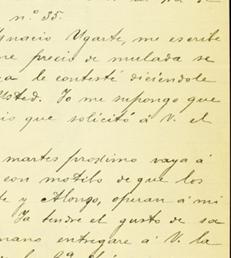 n.º 35.
Ygnacio Ugarte, me escribe
me precio de mulada se
ya le contesté diciéndole
Usted. Yo me supongo que
is que solicitó á V. el
martes proximo vaya á
con motibo de que los
te y Alongo, operan á mi
Ya tendre el gusto de sa
mano entregare á V. la